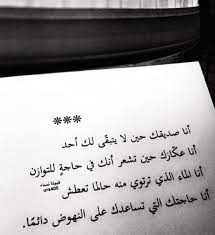 ***
أنا صديقك حين لا يتبقّى لك أحد
أنا عكّازك حين تشعر أنك في حاجةٍ للتوازن
أنا الماء الذي ترتوي منه حالما تعطش
أنا حاجتك التي تساعدك على النهوض دائمًا.